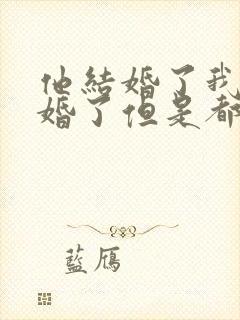 他結婚了我
婚了但是都
藍鴈